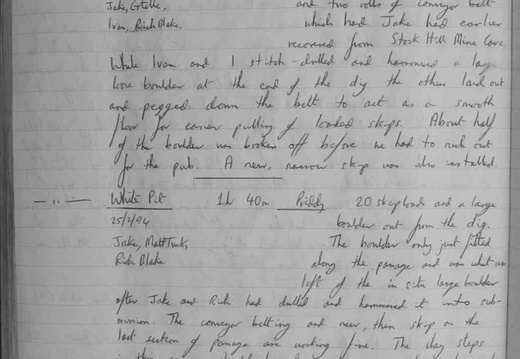 Jake, Estelle, and two rolls of conveyor belt
Ivan, Rich Blake. which Jake had earlier
recovered from Stock Hill Mine Cave.
While Ivan and I stitch-drilled and hammered a large
boulder at the end of the dig the others laid out
and pegged down the belt to act as a smooth
floor for easier pulling of loaded skips. About half
of the boulder was broken off before we had to rush out
for the pub. A new, narrow skip was also installed.
— " — White Pit 1h 40m Priddy 20 skip loads and a large
25/2/94 boulder out from the dig.
Jake, Matt Tuck, The boulder only just fitted
Rich Blake along the passage and was what was
left of the in situ large boulder
after Jake and Rich had drilled and hammered it into sub-
mission. The conveyor belting and new, thin skip on the
last section of passage are working fine. The clay steps
in the